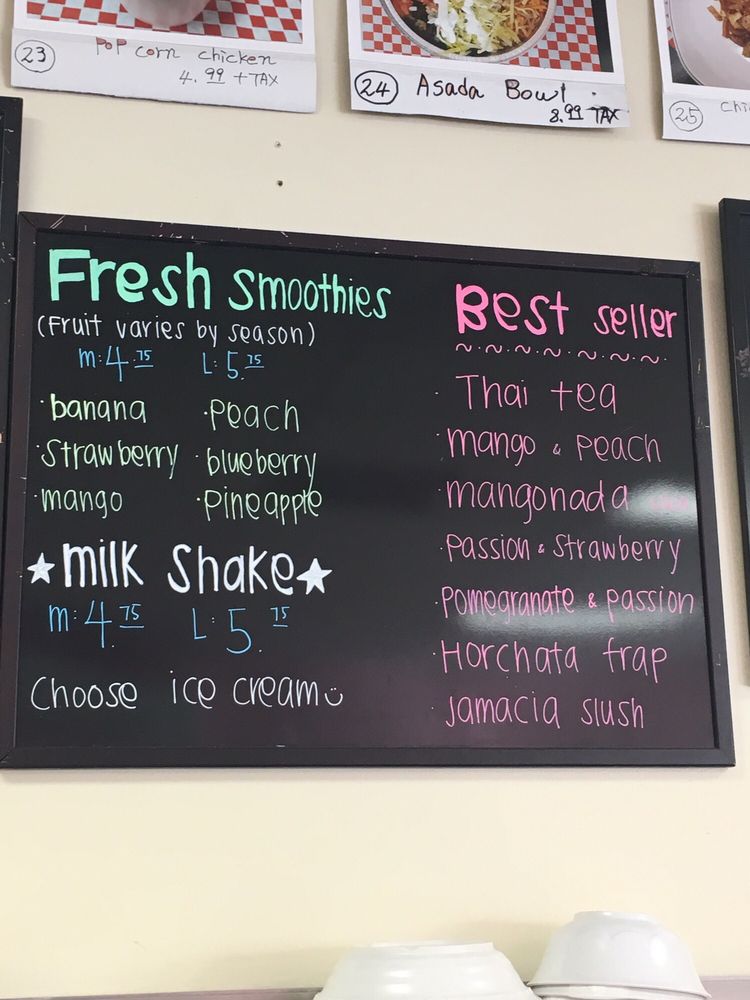 23 Pop corn chicken
4.99 + TAX
24 Asada Bowl
8.99 TAX
25 Chi
Fresh Smoothies
(Fruit varies by season)
m: 4.75 L: 5.75
·banana ·Peach
·Strawberry ·blueberry
·mango ·Pineapple
★milk Shake★
m: 4.75 L: 5.75
Choose ice cream
Best seller
~·~·~·~·~·~·~·
· Thai tea
·mango & Peach
·mangonada
·Passion & Strawberry
·Pomegranate & passion
·Horchata frap
·Jamacia slush